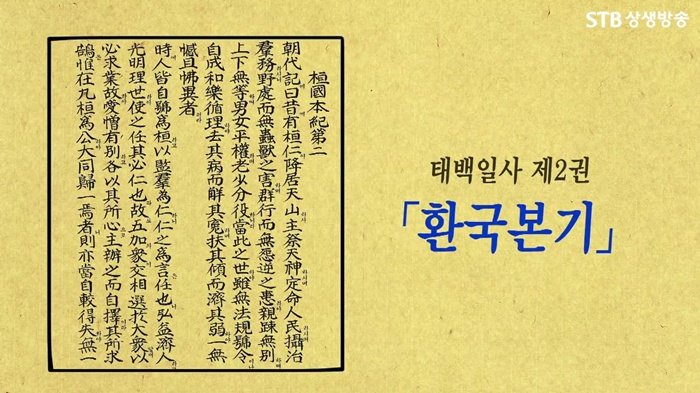 STB 상생방송
桓國本紀第二
朝代記曰昔有桓仁降居天山主祭天神定命人民攝治
羣務野處而無蟲獸之害群行而無怨逆之患親踈無別
上下無等男女平權老少分役當此之世雖無法規號令
自成和樂循理去其病而解其寃扶其傾而濟其弱一無
憾且怫異者
時人皆自號爲桓以監羣爲仁仁之爲言任也弘益濟人
光明理世使之任其必仁也故五加衆交相選於大衆以
必求業故愛憎有別各以其所心主辦之而自擇其所求
鵠惟在九桓爲公大同歸一焉者則亦當自較得失無一
태백일사 제2권
「환국본기」